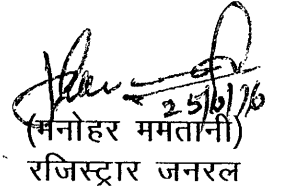 25/6/76
(मनोहर ममतानी)
रजिस्ट्रार जनरल